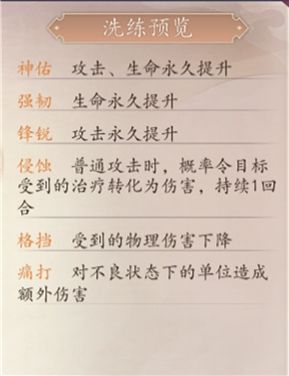 洗练预览
神佑 攻击、生命永久提升
强韧 生命永久提升
锋锐 攻击永久提升
侵蚀 普通攻击时，概率令目标
受到的治疗转化为伤害，持续1回
合
格挡 受到的物理伤害下降
痛打 对不良状态下的单位造成
额外伤害